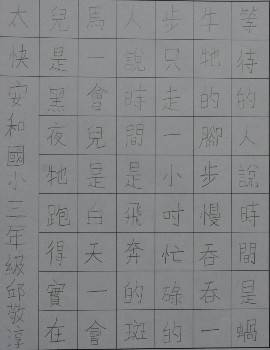 等待的人說時間是蝸
牛牠的腳步慢吞吞一
步只走一小吋忙碌的
人說時間是飛奔的斑
馬一會兒是白天一會
兒是黑夜牠跑得實在
太快 安和國小三年級邱敬淳